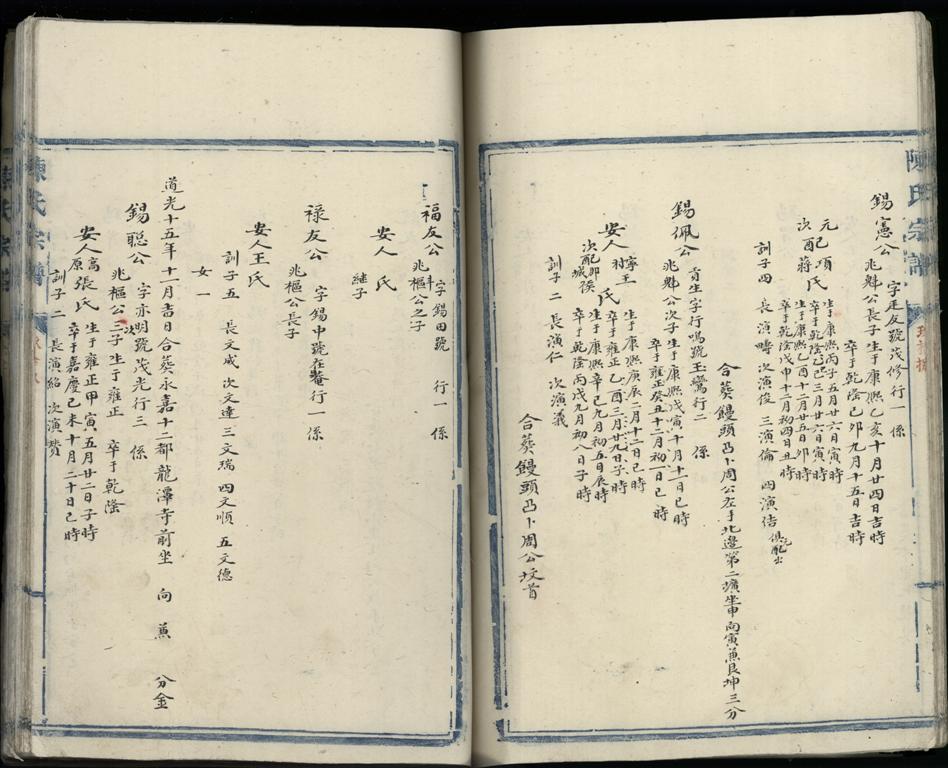 陳氏宗譜
錫憲公 字廷友號茂修行一 係
兆斞公長子 生于康熙乙亥十月廿四日吉時
卒于乾隆己卯九月十五日吉時
元配項氏 生于康熙丙子五月廿六日寅時
卒于乾隆乙巳三月廿六日寅時
次配蔣氏 生于康熙乙酉十二月廿五日卯時
卒于乾隆戊申十二月初四日丑時
訓子四 長演疇 次演俊 三演倫 四演佶 俱配出
合葵饅頭凸卜周公左手北邊第二壙坐申向寅蕉艮坤三分
錫佩公 貢生字行鳴號玉鸞行二 係
兆斞公次子 生于康熙戊寅十月十一日巳時
卒于雍正癸丑十二月初一日巳時
安人寧村王氏 生于康熙庚辰二月十二日巳時
卒于雍正乙酉三月廿九日子時
次配郡城侯 生于康熙辛巳九月初五日辰時
卒于乾隆丙戌九月初八日子時
訓子二 長演仁 次演義
合葵饅頭凸卜周公坟首
福友公 字錫田號 行一 係
兆斞樞公之子
安人 氏
継子
禄友公 字錫中號在菴行一係
兆樞公長子
安人王氏
訓子五 長文咸 次文達 三文瑞 四文順 五文德
女一
道光十五年十二月吉日合葵永嘉十二都龍潭寺前坐 向 蕉 分金
錫聡公 字亦明號茂光行三 係
兆樞公次子 生于雍正 卒于乾隆
安人高原張氏 生于雍正甲寅五月廿二日子時
卒于嘉慶己未十月二十日巳時
訓子二 長演紹 次演贊
陳氏宗譜